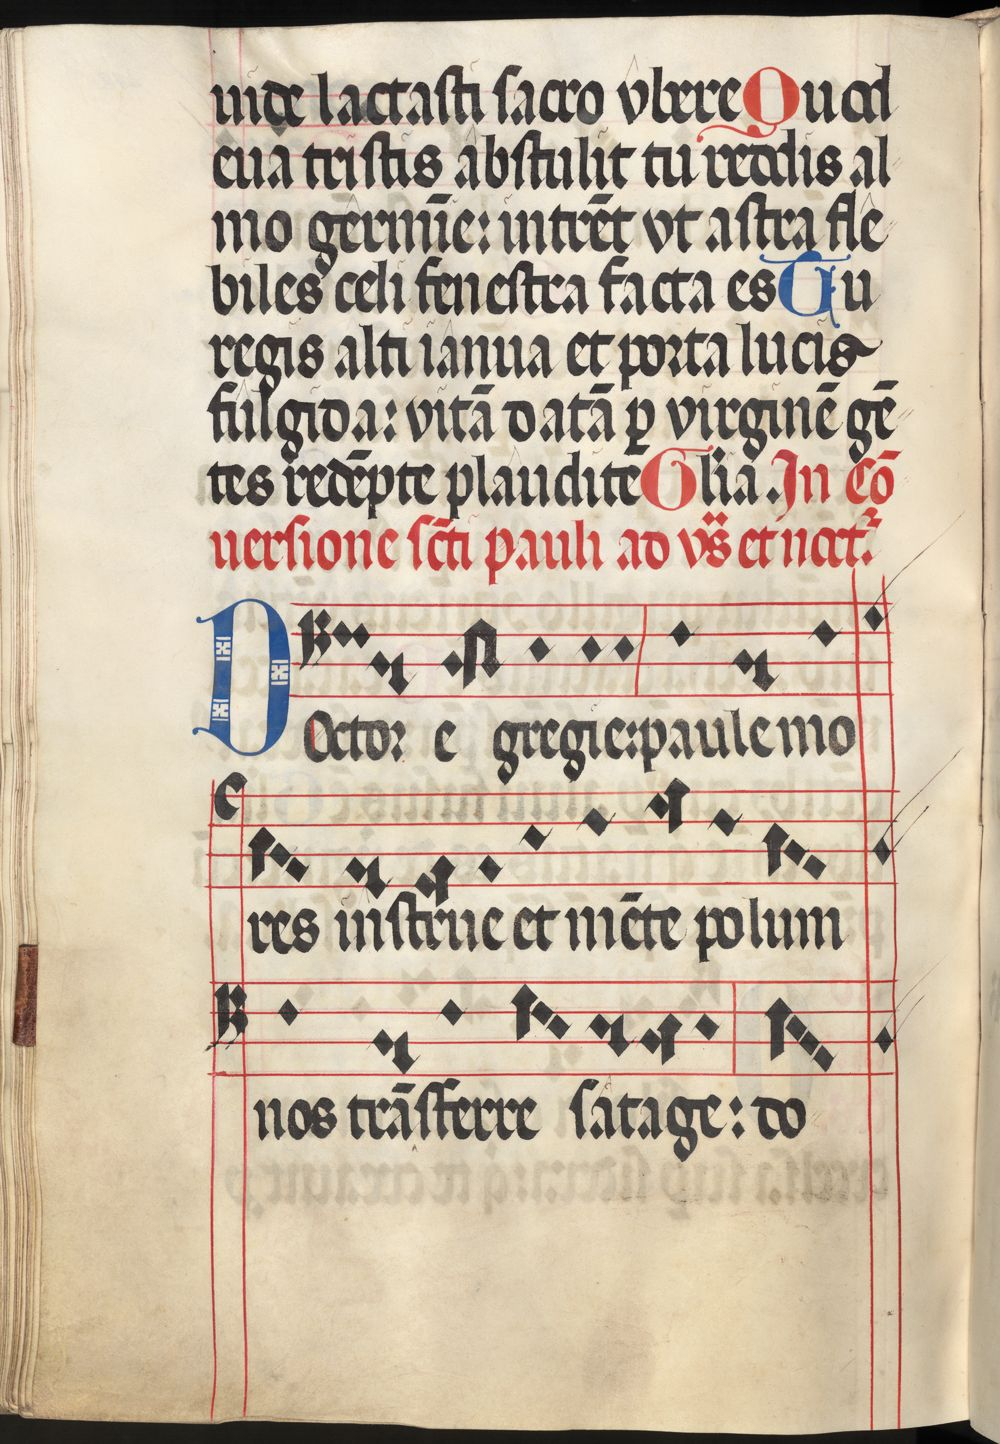 uide lactasti sacro vbere Quod
eua tristis abstulit tu reddis al
mo germīe: intrēt vt astra fle
biles celi fenestra facta es Tu
regis alti ianua et porta lucis
fulgida: vitā datā ꝑ virginē gē
tes redēpte plaudite Glīa. In Cō
uersione sc̄ti pauli ad vs̄ et noct.
Doctor e gregie: paule mo
res instrue et mēte polum
nos trāsferre satage: do